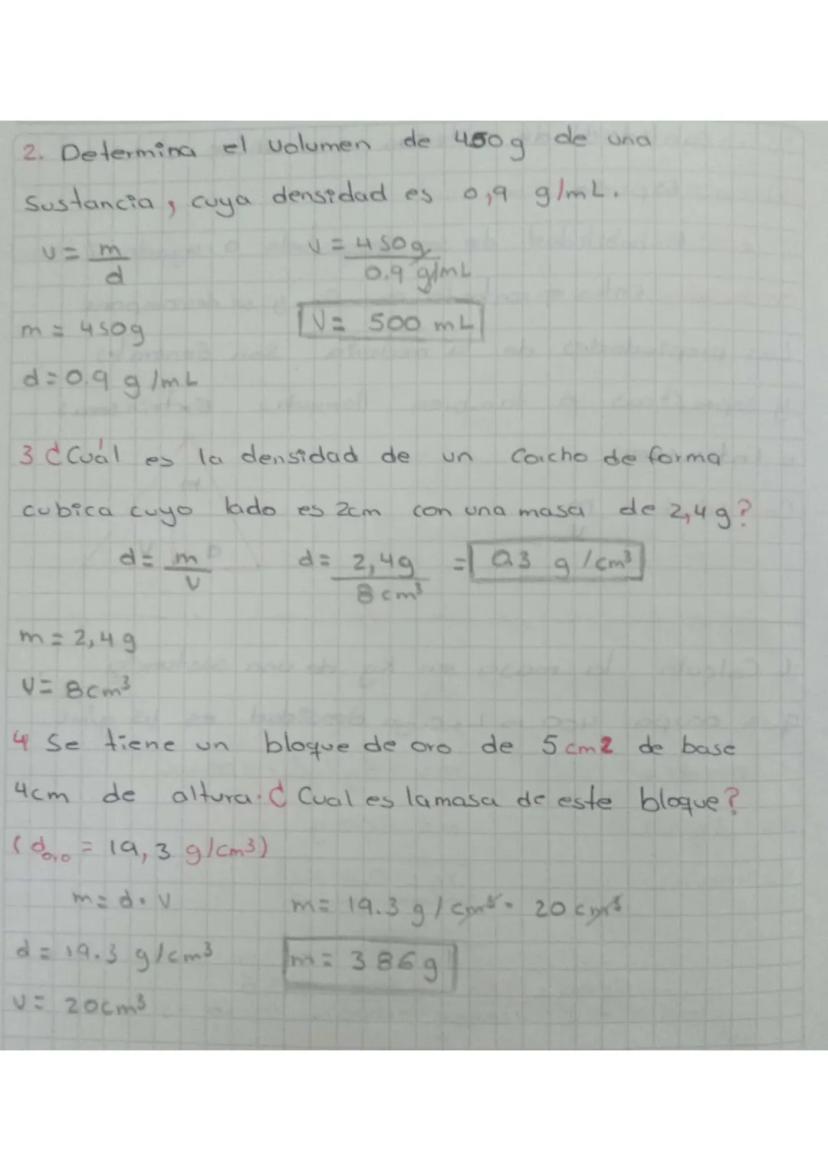 2. Determina el volumen de 450g de una
sustancia, cuya densidad es 0,9 g/mL.
v = m/d    V = 450g / 0.9 g/mL
m = 450g    V = 500 mL
d = 0.9 g/mL
3 ¿Cuál es la densidad de un corcho de forma
cubica cuyo lado es 2cm con una masa de 2,4g?
d = m/v    d = 2,4g / 8 cm³ = 0.3 g/cm³
m = 2,4g
V = 8cm³
4 Se tiene un bloque de oro de 5 cm2 de base
4cm de altura. ¿Cual es la masa de este bloque?
(doro = 19,3 g/cm3)
m = d · V    m = 19.3 g/cm³ · 20 cm³
d = 19.3 g/cm³    m = 386g
v = 20cm³